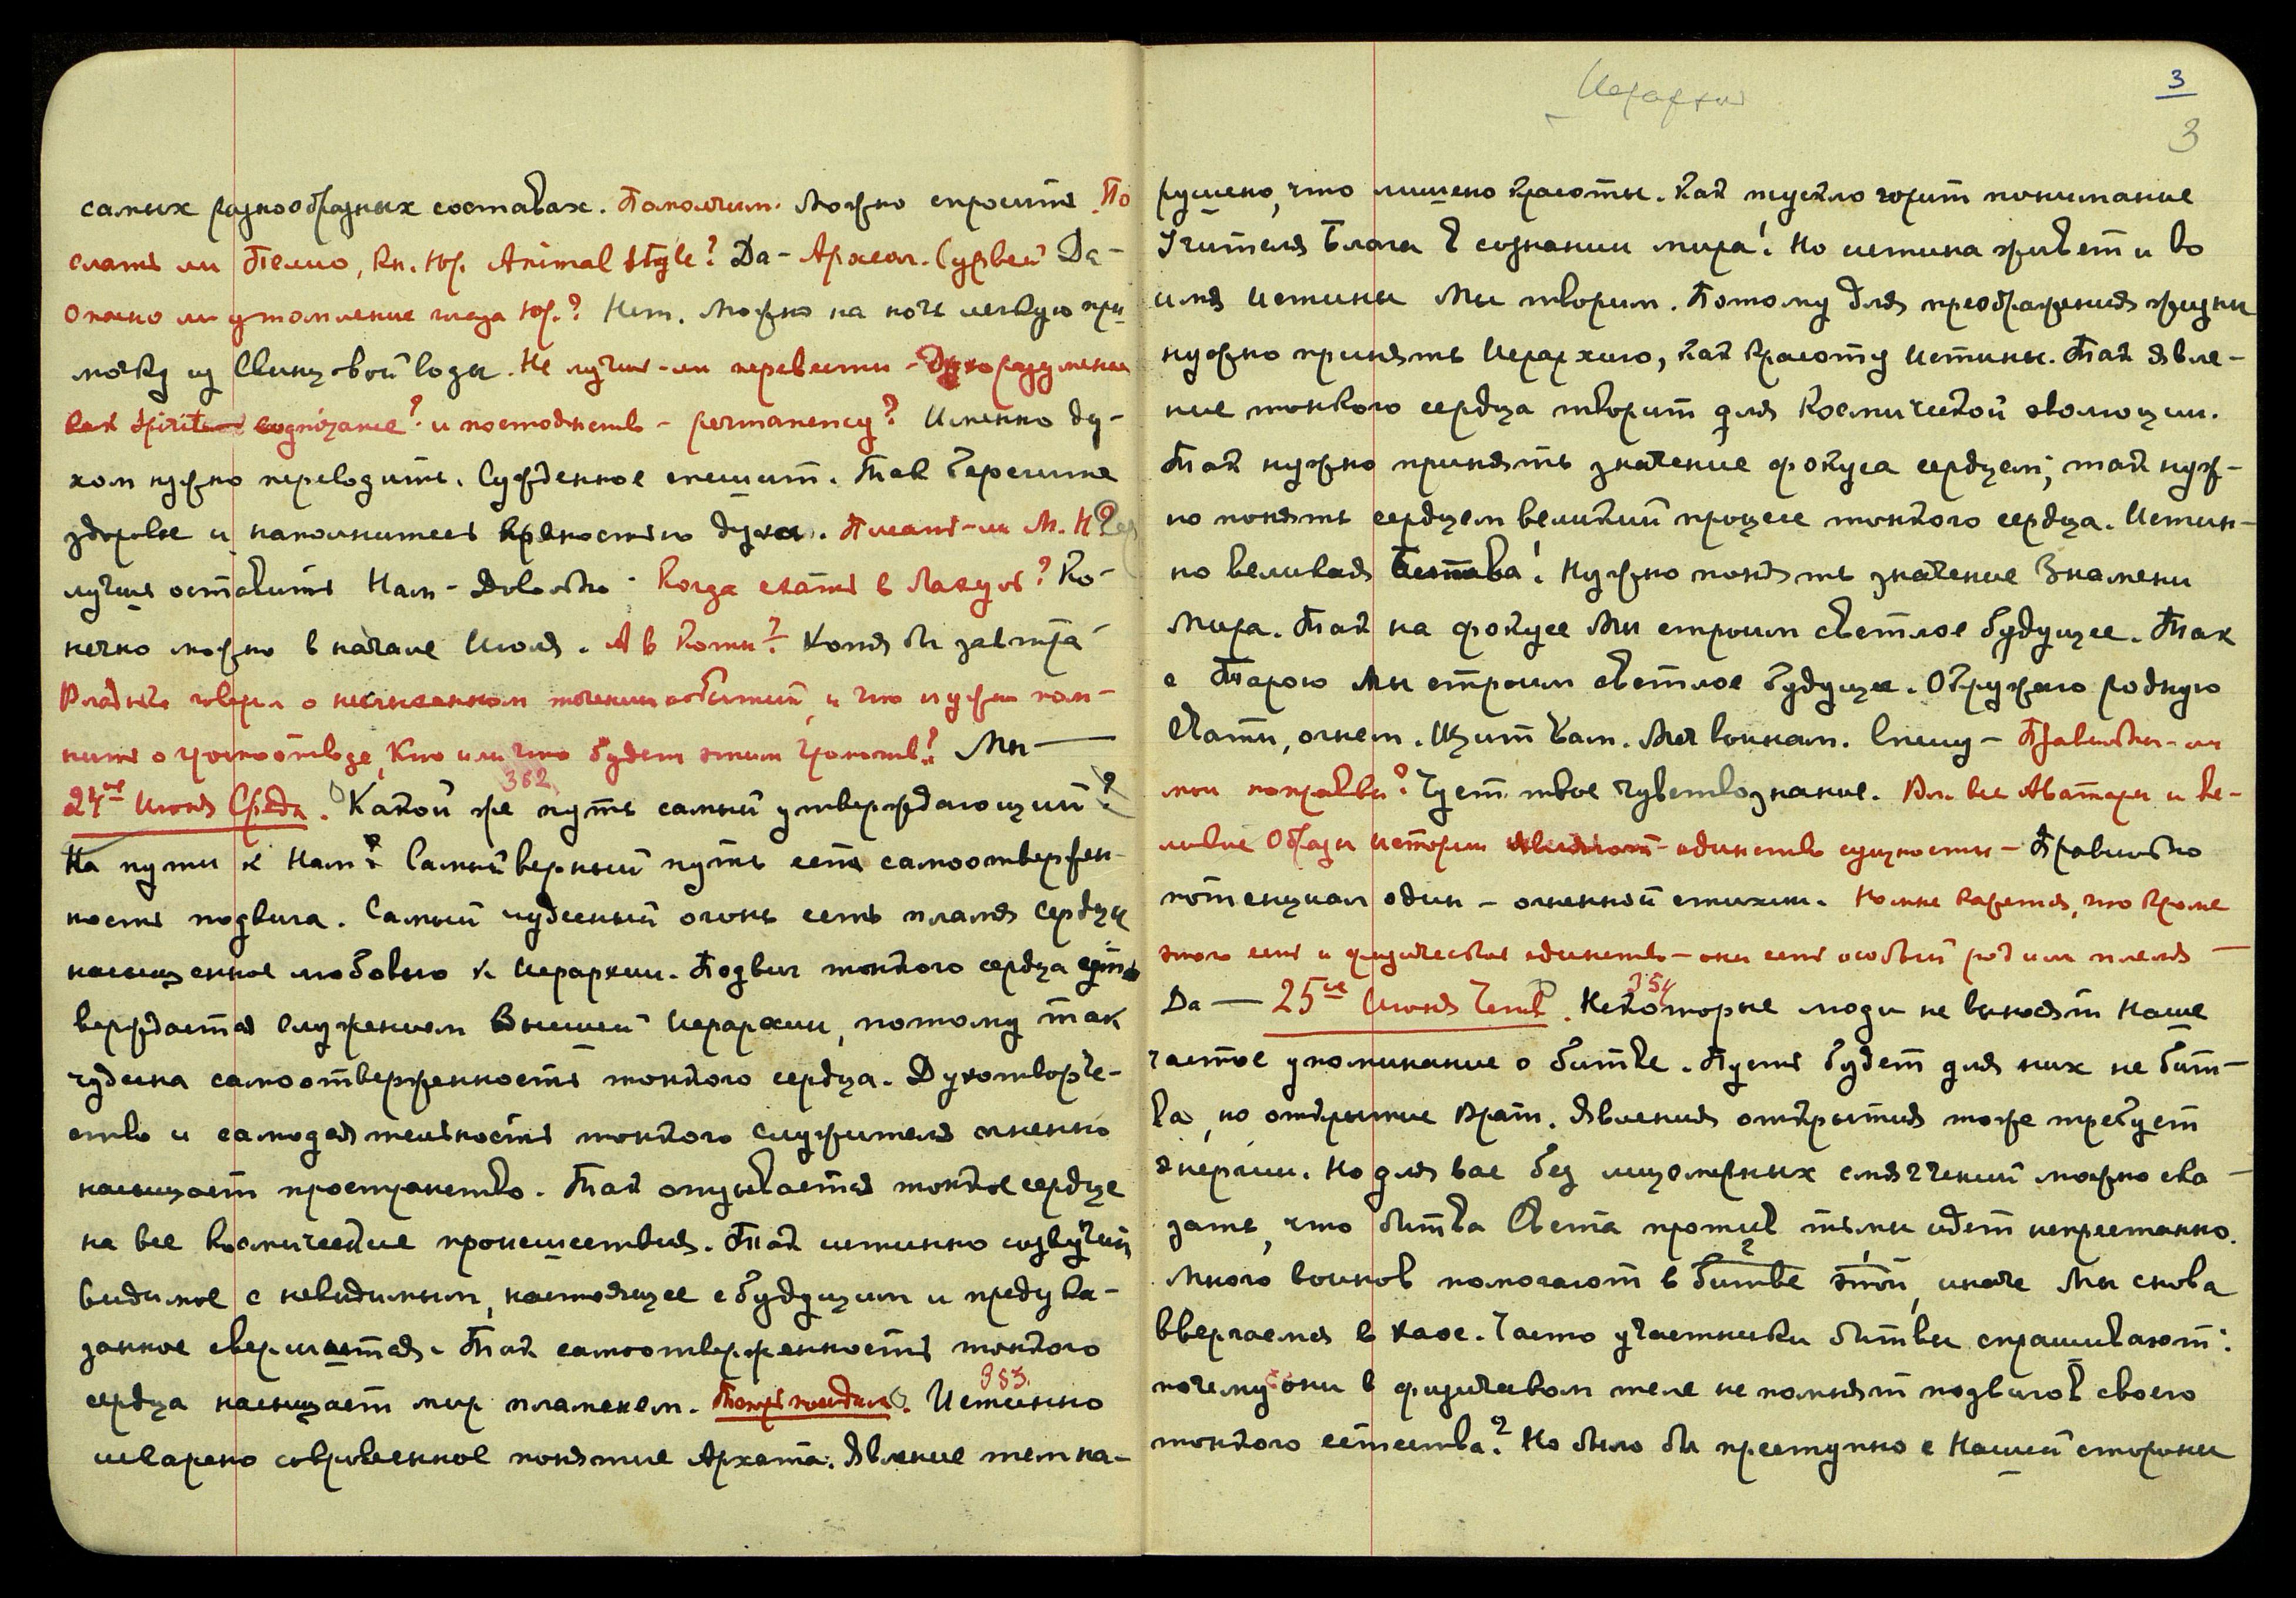 самых разнообразных составах. Помолчим. Можно спросить. По
слать ли Пелио, Кн. Юр. Animal style? Да – Археол. Сурвей Да –
Опасно ли утомление глаза Юр.? Нет. Можно на ночь легкую при
мочку из Свинцовой воды. Не лучше-ли перевести – Духоразумение
как Spiritual cognizance? и постоянство – permanency? Именно ду-
хом нужно переводить. Сужденное спешит. Так берегите
здоровье и наполнитесь крепостью духа. Писать-ли М. Н?
лучше оставить Нам – Довольно – Когда ехать в Лахуль? Ко-
нечно можно в начале Июля. А в Коти? Хотя бы завтра
Владыка говорил о неслыханном течении событий, и что нужно пом-
нить о громоотводе, Кто или что будет этим громоотв.? Мы —
362
24ое Июня Среда. Какой же путь самый утверждающий?
На пути к Нам? Самый верный путь есть самоотвержен-
ность подвига. Самый чудесный огонь есть пламя сердца
насыщенное любовью к Иерархии. Подвиг тонкого сердца ут-
верждается служением Высшей Иерархии, потому так
чудесна самоотверженность тонкого сердца. Духотворче-
ство и самодеятельность тонкого служителя огненно
насыщает пространство. Так отзывается тонкое сердце
на все космические происшествия. Так истинно созвучит
видимое с невидимым, настоящее с будущим и предука-
занное свершается. Так самоотверженность тонкого
353
сердца насыщает мир пламенем. Истинно
искажено современное понятие Архата. Явление тем на-
Иерархия
3
3
рушено, что лишено красоты. Как тускло горит понимание
Учителя Блага в сознании мира! Но истина живет и во
имя Истины Мы творим. Потому для преображения жизни
нужно принять Иерархию, как красоту Истины. Так явле-
ние тонкого сердца творит для Космической эволюции.
Так нужно принять значение фокуса сердцем; так нуж-
но понять сердцем великий процесс тонкого сердца. Истин-
но великая битва! Нужно понять значение Знамени
Мира. Так на фокусе Мы строим светлое будущее. Так
с Тарою Мы строим светлое будущее. Окружаю родную
Свати, огнем. Щит вам. Меч воинам. Спешу – Правильны-ли
мои поправки? Чует твое чувствознание. Вл. все Аватары и Ве-
ликие Образы истории являют единство сущности – Правильно
потенциал один – огненной стихии. Но мне кажется, что кроме
этого есть и физическое единство – они есть особый род или племя —
354
Да — 25ое Июня Четв. Некоторые люди не выносят Наше
частое упоминание о битве. Пусть будет для них не бит-
ва, но открытие Врат. Явления открытия тоже требует
энергии. Но для вас без лицемерных смягчений можно ска-
зать, что битва Света против тьмы идет непрестанно.
2 1
Много воинов помогают в битве этой, иначе Мы снова
ввергаемся в хаос. Часто участники битвы спрашивают:
почему они в физическом теле не помнят подвигов своего
тонкого естества? Но было бы преступно с Нашей стороны